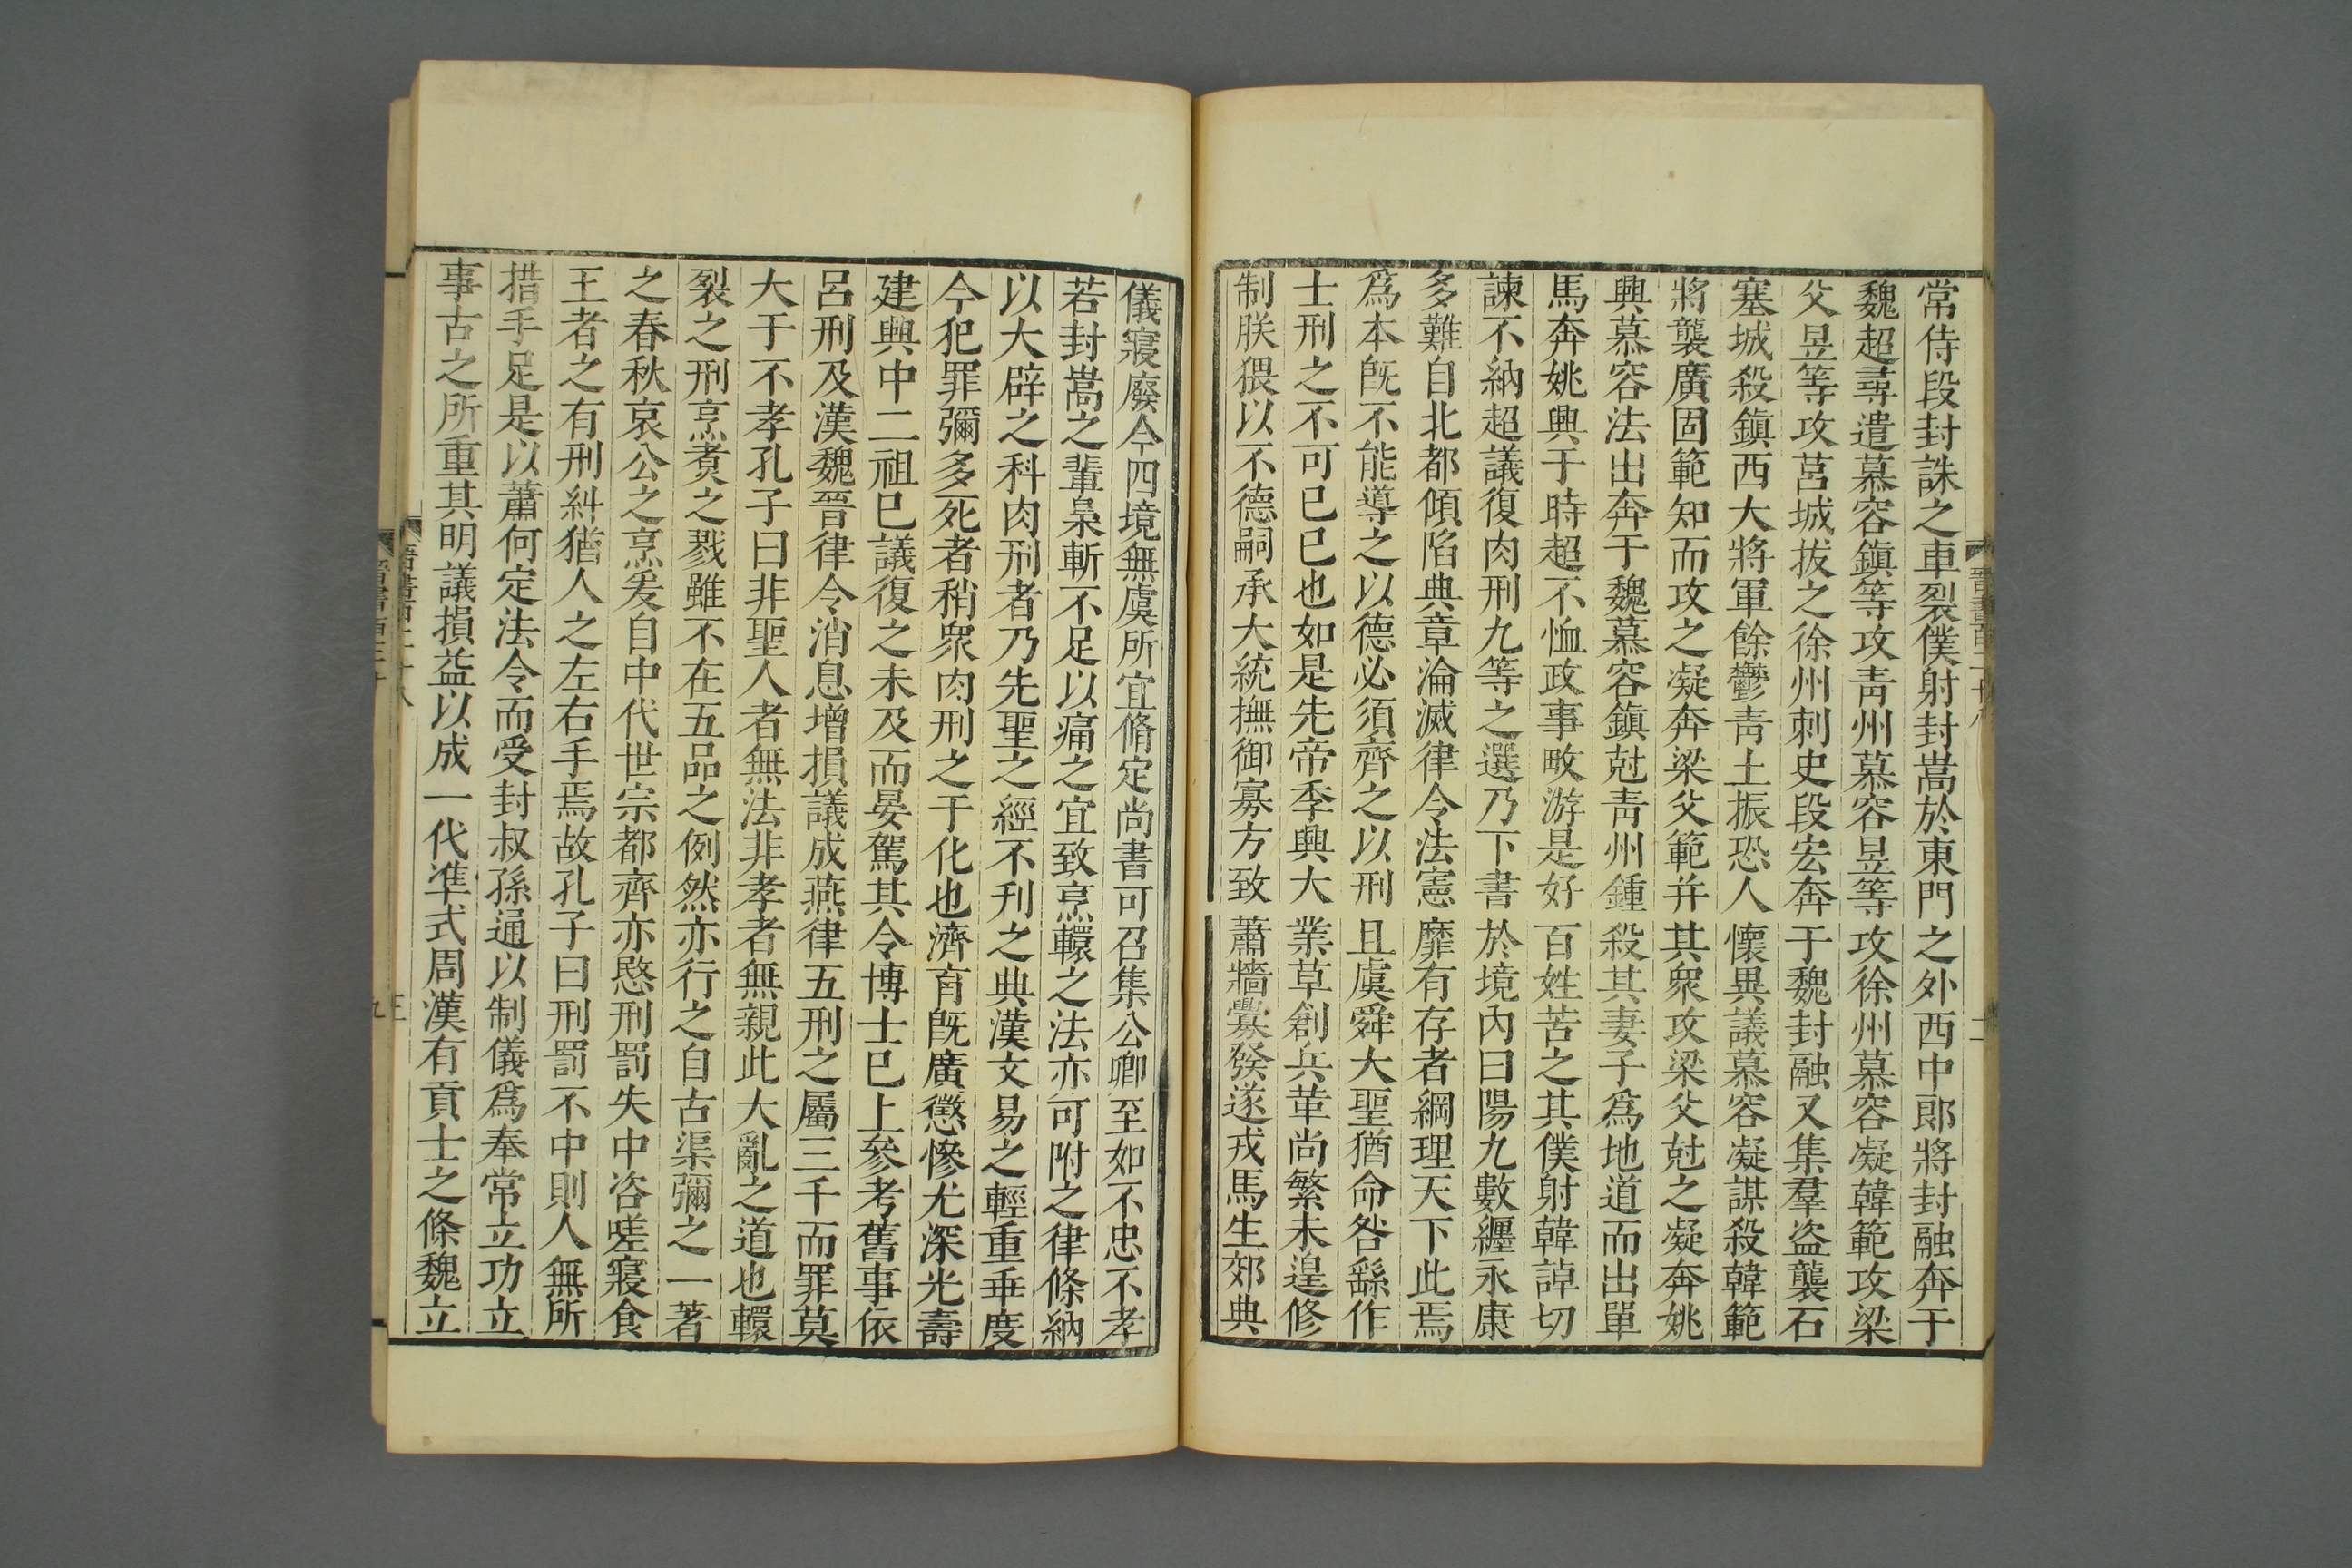 常侍段封誅之車裂僕射封嵩於東門之外西中郎將封融奔于
魏超尋遣慕容鎮等攻靑州慕容昱等攻徐州慕容凝韓範攻梁
父昱等攻莒城拔之徐州刺史段宏奔于魏封融又集羣盜襲石
塞城殺鎮西大將軍餘鬱靑土振恐人懷異議慕容凝謀殺韓範
將襲廣固範知而攻之凝奔梁父範幷其衆攻梁父尅之凝奔姚
興慕容法出奔于魏慕容鎮尅靑州鍾殺其妻子爲地道而出單
馬奔姚興于時超不恤政事畋游是好百姓苦之其僕射韓𧨳切
諫不納超議復肉刑九等之選乃下書於境內曰陽九數纏永康
多難自北都傾陷典章淪滅律令法憲靡有存者綱理天下此焉
爲本旣不能導之以德必須齊之以刑且虞舜大聖猶命咎繇作
士刑之不可已已也如是先帝季興大業草創兵革尚繁未遑修
制朕猥以不德嗣承大統撫御寡方致蕭牆釁發遂戎馬生郊典
儀寢廢今四境無虞所宜脩定尚書可召集公卿至如不忠不孝
若封嵩之輩梟斬不足以痛之宜致烹轘之法亦可附之律條納
以大辟之科肉刑者乃先聖之經不刋之典漢文易之輕重垂度
今犯罪彌多死者稍衆肉刑之于化也濟育旣廣懲慘尤深光壽
建興中二祖已議復之未及而晏駕其令博士已上參考舊事依
呂刑及漢魏晉律令消息增損議成燕律五刑之屬三千而罪莫
大于不孝孔子曰非聖人者無法非孝者無親此大亂之道也轘
裂之刑烹煑之戮雖不在五品之例然亦行之自古渠彌之一著
之春秋哀公之烹爰自中代世宗都齊亦愍刑罰失中咨嗟寢食
王者之有刑糾猶人之左右手焉故孔子曰刑罰不中則人無所
措手足是以蕭何定法令而受封叔孫通以制儀爲奉常立功立
事古之所重其明議損益以成一代準式周漢有貢士之條魏立